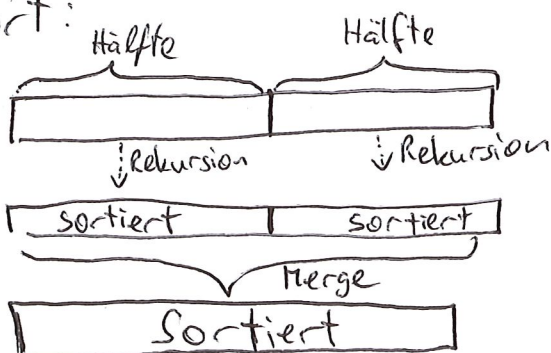 rt:
Hälfte Hälfte
Rekursion Rekursion
sortiert sortiert
Merge
Sortiert